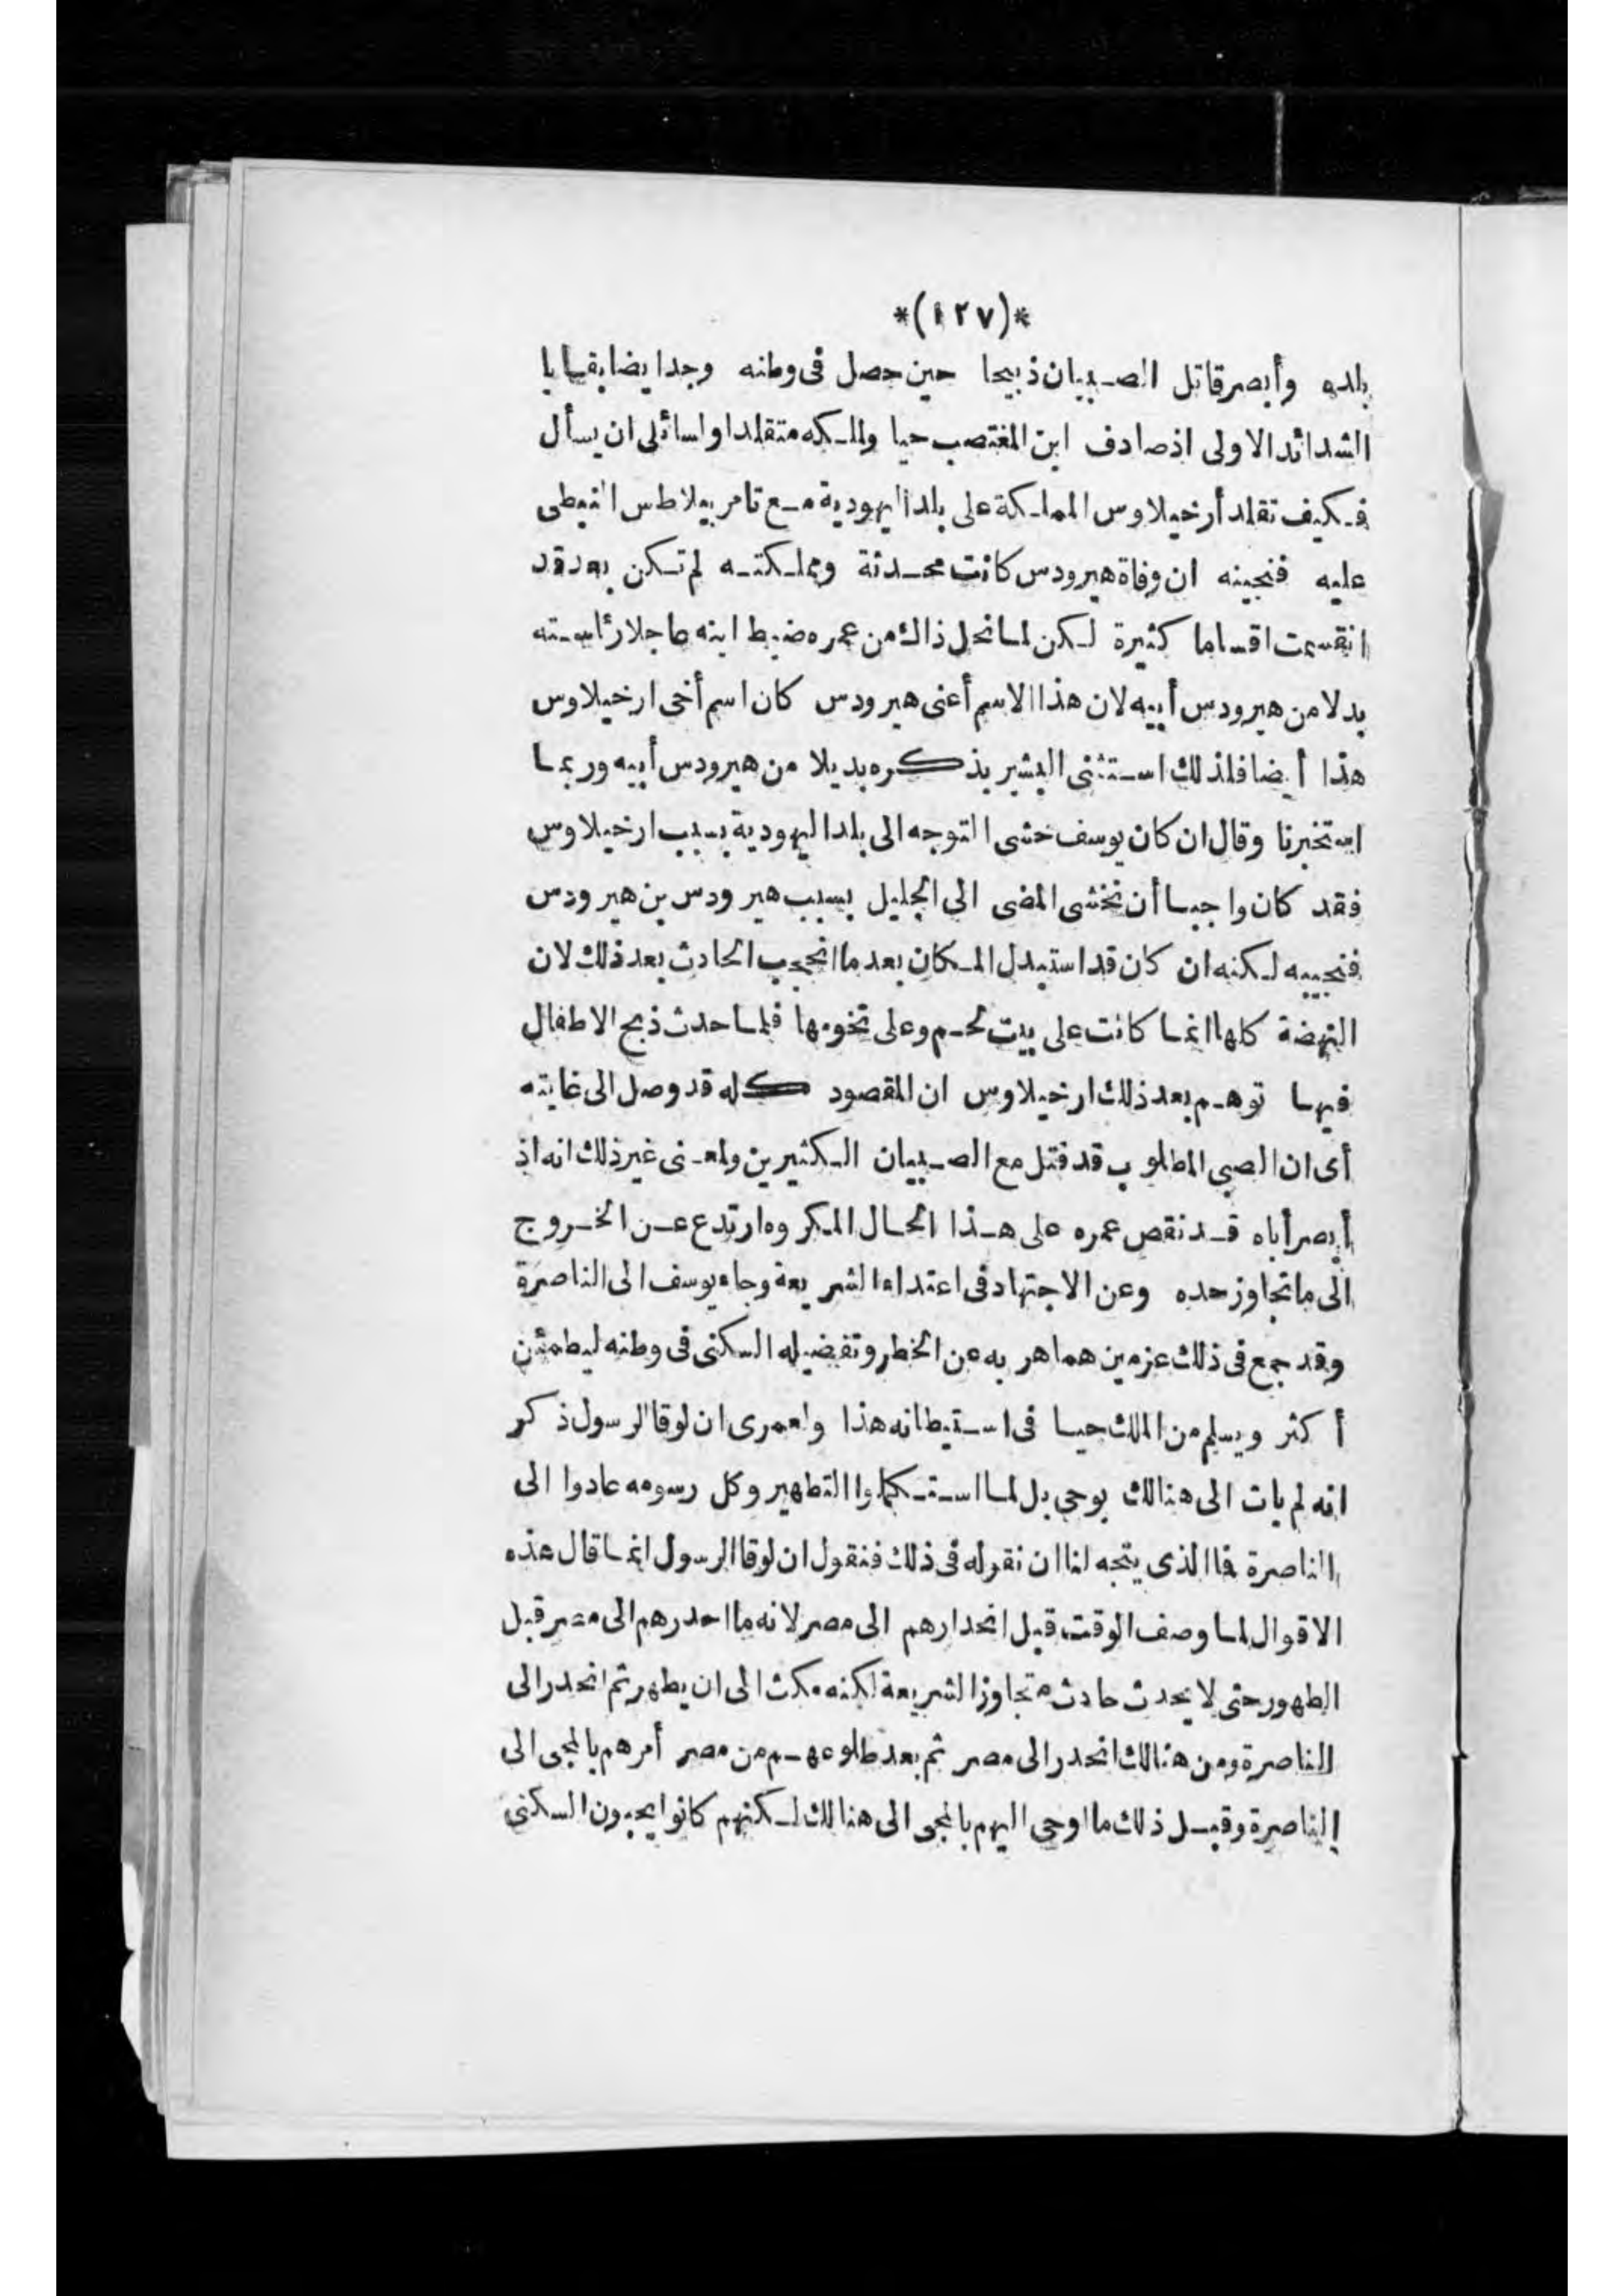 *(١٢٧)*
بلده وأبصر قاتل الصبيان ذبيحا حين حصل فى وطنه وجد ايضا بقايا
الشدائد الاولى اذ صادف ابن المغتصب حيا ولملكه متقلدا ولسائلى ان يسأل
فكيف تقلد أرخيلاوس المملكة على بلد اليهودية مع تامر بيلاطس النبطى
عليه فنجيبه ان وفاة هيرودس كانت محدثة ومملكته لم تكن بعد قد
انقسمت اقساما كثيرة لكن لما نحل ذاك من عمره ضبط ابنه عاجلا رئاسته
بدلا من هيرودس أبيه لان هذا الاسم أعنى هيرودس كان اسم أخى ارخيلاوس
هذا أيضا فلذلك استثنى البشير بذكره بديلا من هيرودس أبيه وربما
استخبرنا وقال ان كان يوسف خشى التوجه الى بلد اليهودية بسبب ارخيلاوس
فقد كان واجبا أن نخشى المضى الى الجليل بسبب هيرودس بن هيرودس
فنجيبه لكنه ان كان قد استبدل المكان بعد ما انحجب الحادث بعد ذلك لان
النهضة كلها انما كانت على بيت لحم وعلى تخومها فلما حدث ذبح الاطفال
فيها توهم بعد ذلك ارخيلاوس ان المقصود كله قد وصل الى غايته
أى ان الصبى المطلوب قد قتل مع الصبيان الكثيرين ولمعنى غير ذلك انه اذ
أبصر أباه قد نقص عمره على هذا الحال المكروه ارتدع عن الخروج
الى ما تجاوز حده وعن الاجتهاد فى اعتداء الشريعة وجاء يوسف الى الناصرة
وقد جمع فى ذلك عزمين هما هربه عن الخطر وتفضيله السكنى فى وطنه ليطمئن
أكثر ويسلم من الملك حيا فى استيطانه هذا ولعمرى ان لوقا الرسول ذكر
انه لم يات الى هنالك بوحى بل لما استكملوا التطهير وكل رسومه عادوا الى
الناصرة فما الذى يتجه لنا ان نقوله فى ذلك فنقول ان لوقا الرسول انما قال هذه
الاقوال لما وصف الوقت قبل انحدارهم الى مصر لانه ما احدرهم الى مصر قبل
الطهور حتى لا يحدث حادث متجاوز الشريعة لكنه مكث الى ان يطهر ثم انحدر الى
الناصرة ومن هنالك انحدر الى مصر ثم بعد طلوعهم من مصر أمرهم بالمجى الى
الناصرة وقبل ذلك ما اوحى اليهم بالمجى الى هنالك لكنهم كانوا يحبون السكنى